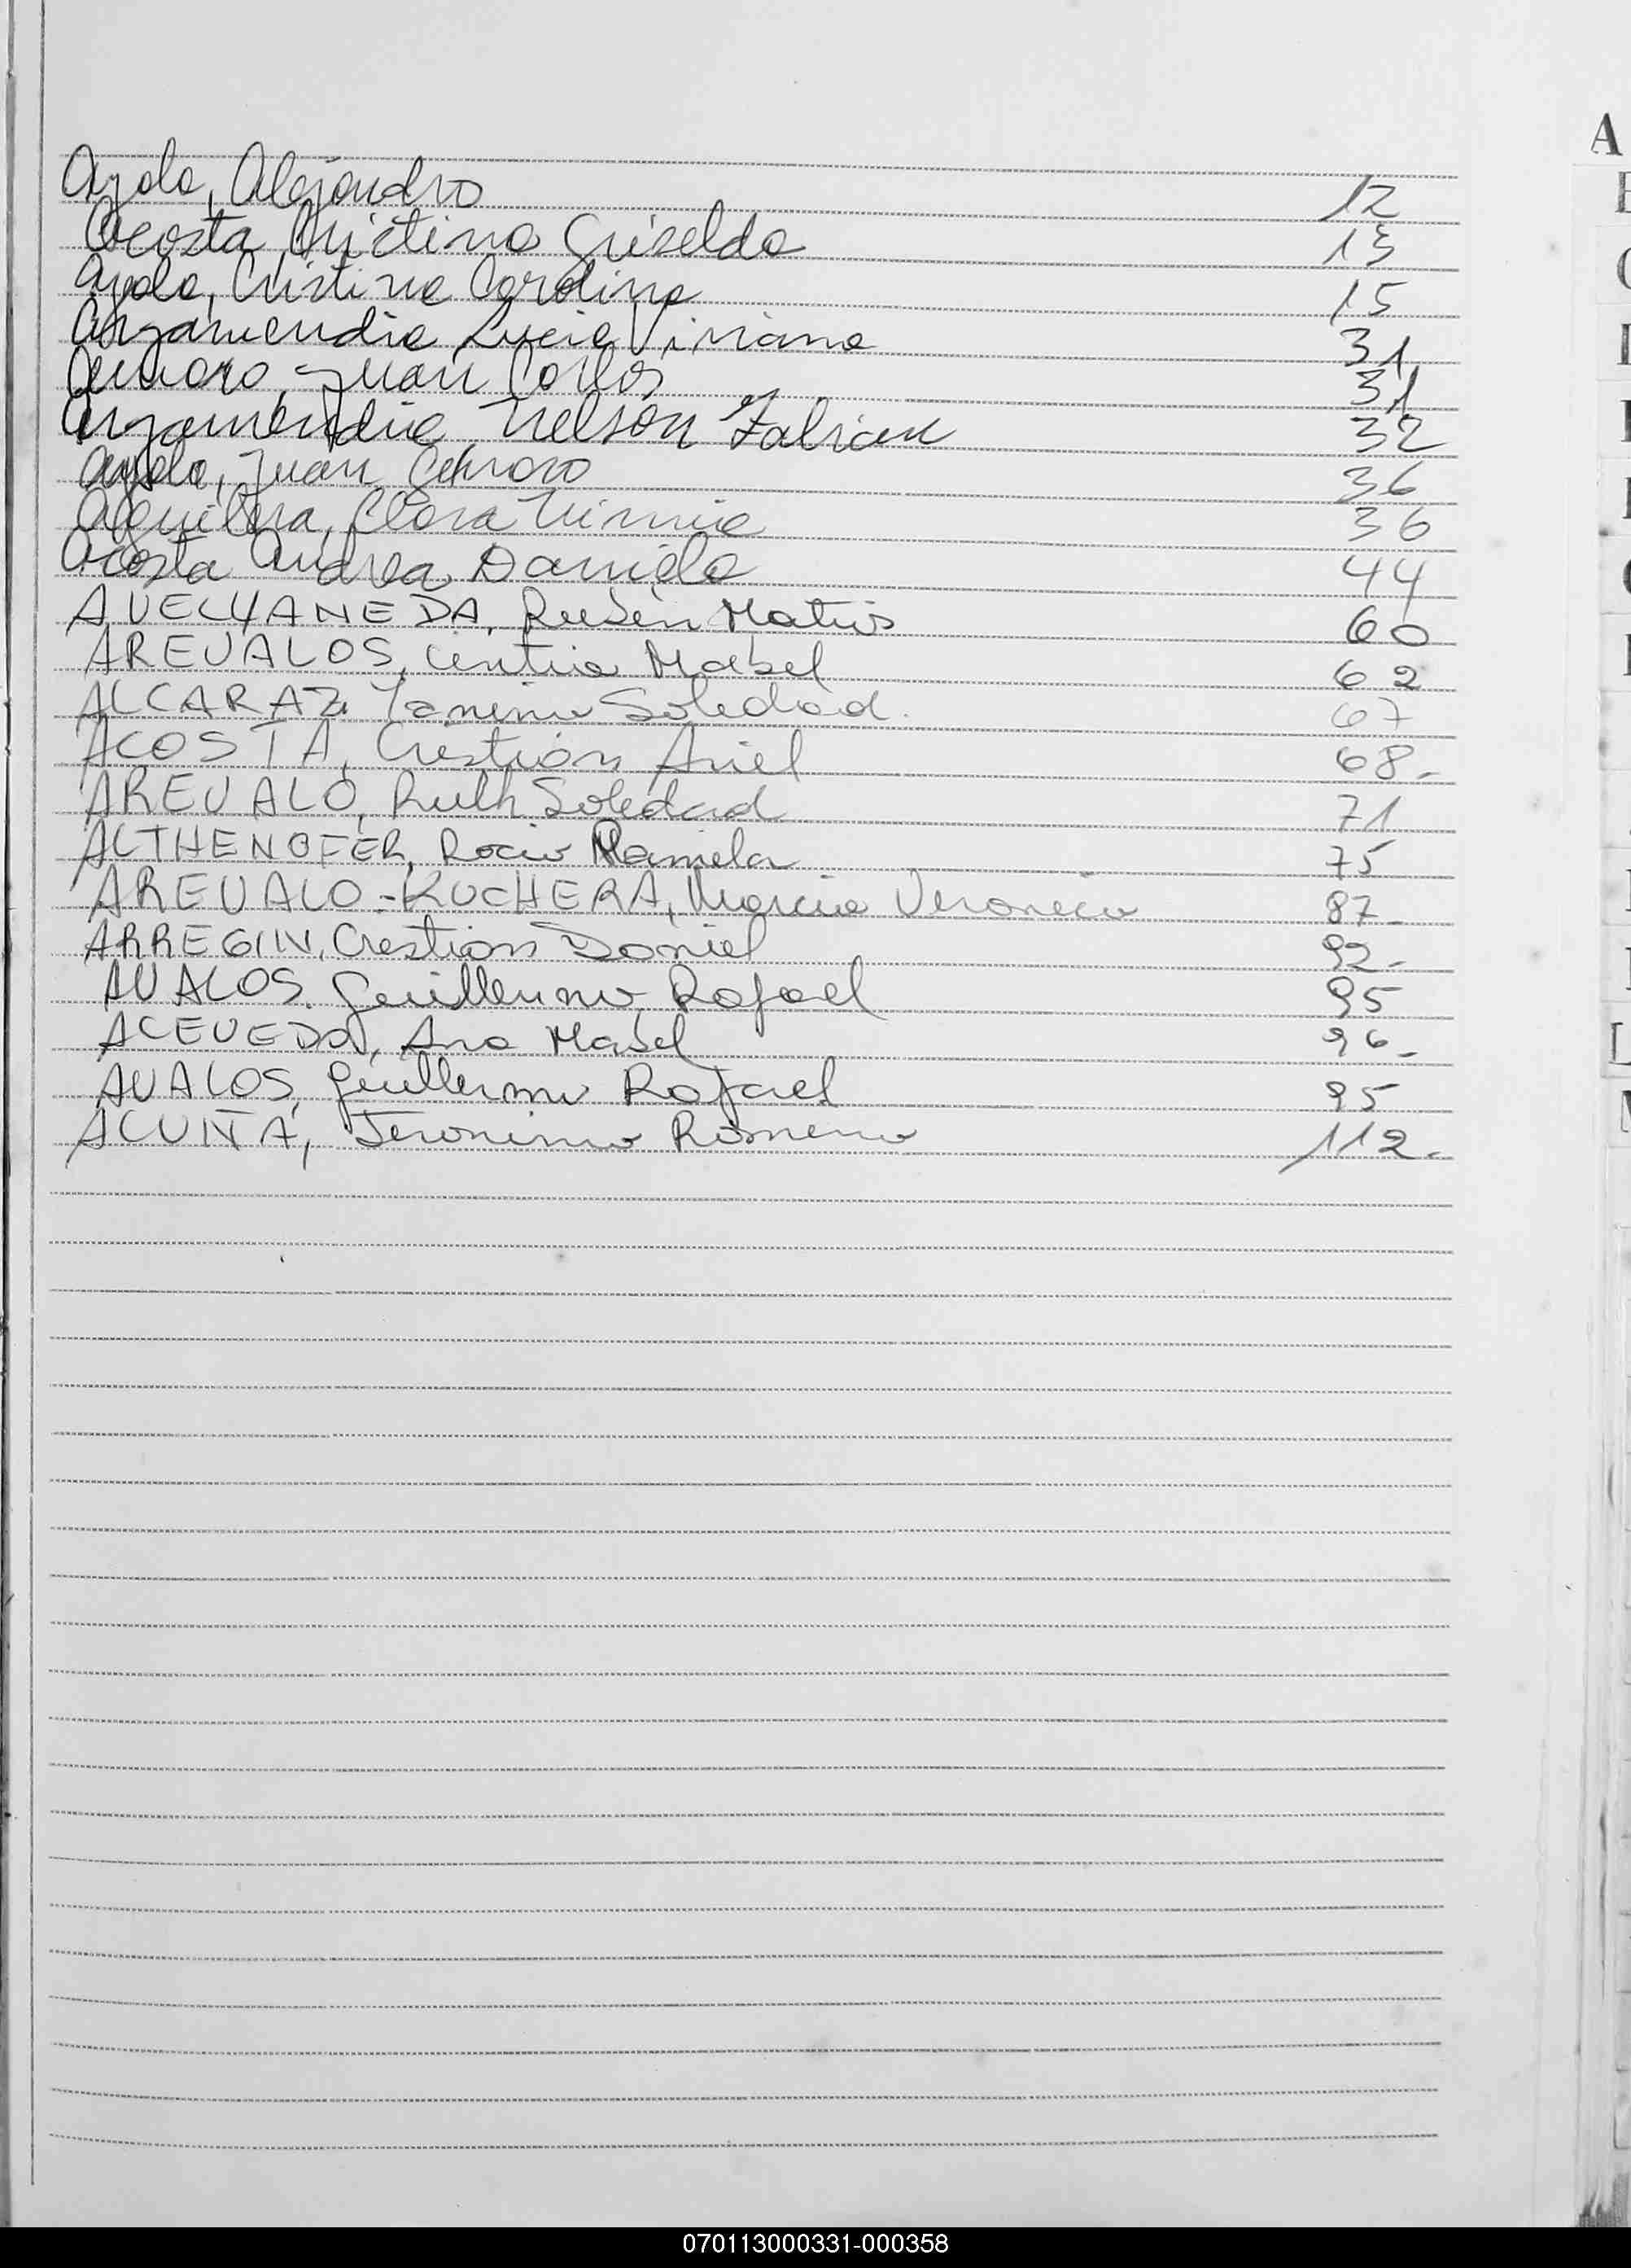 A
Ayala, Alejandro 12
Acosta, Cristina Griselda 13
Ayala, Cristina Carolina 15
Arzamendia, Lucia Viviana 31
Juan Carlos 31
Arzamendia, Nelson Fabian 32
Ayala, Juan Genaro 36
Aguilera, Clara Virginia 36
Acosta Andrea Daniela 44
AVELLANEDA, Rubén Matias 60
AREVALOS, Cintia Mabel 62
ALCARAZ Yanina Soledad. 67
ACOSTA, Cristian Ariel 68-
AREVALO, Ruth Soledad 71
ALTHENOFER, Rocio Mariela 75
AREVALO-KUCHERA, Marcia Veronica 87-
ARREGIN, Cristian Daniel 92-
AVALOS, Guillermo Rafael 95
ACEVEDO, Ana Mabel 96-
AVALOS, Guillermo Rafael 95
ACUÑA, Jeronimo Romeno 112-
070113000331-000358